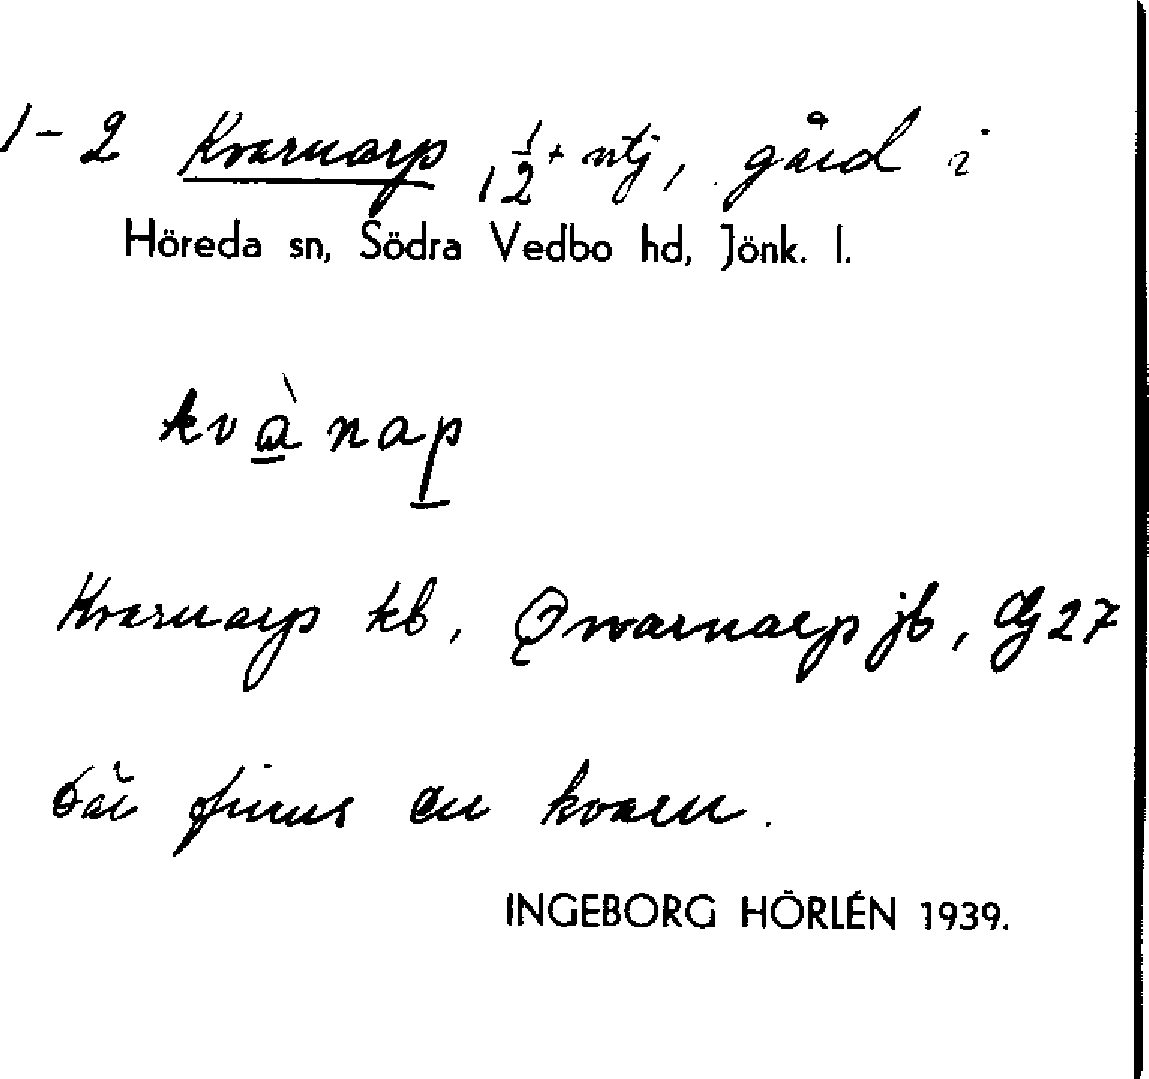 1-2 Kvarnarp, 1/2 + ntj, gård i
Höreda sn, Södra Vedbo hd, Jönk. l.
kvànap
Kvarnarp kb, Qwarnarp jb, Gj 27
Där finns en kvarn.
INGEBORG HÖRLÉN 1939.